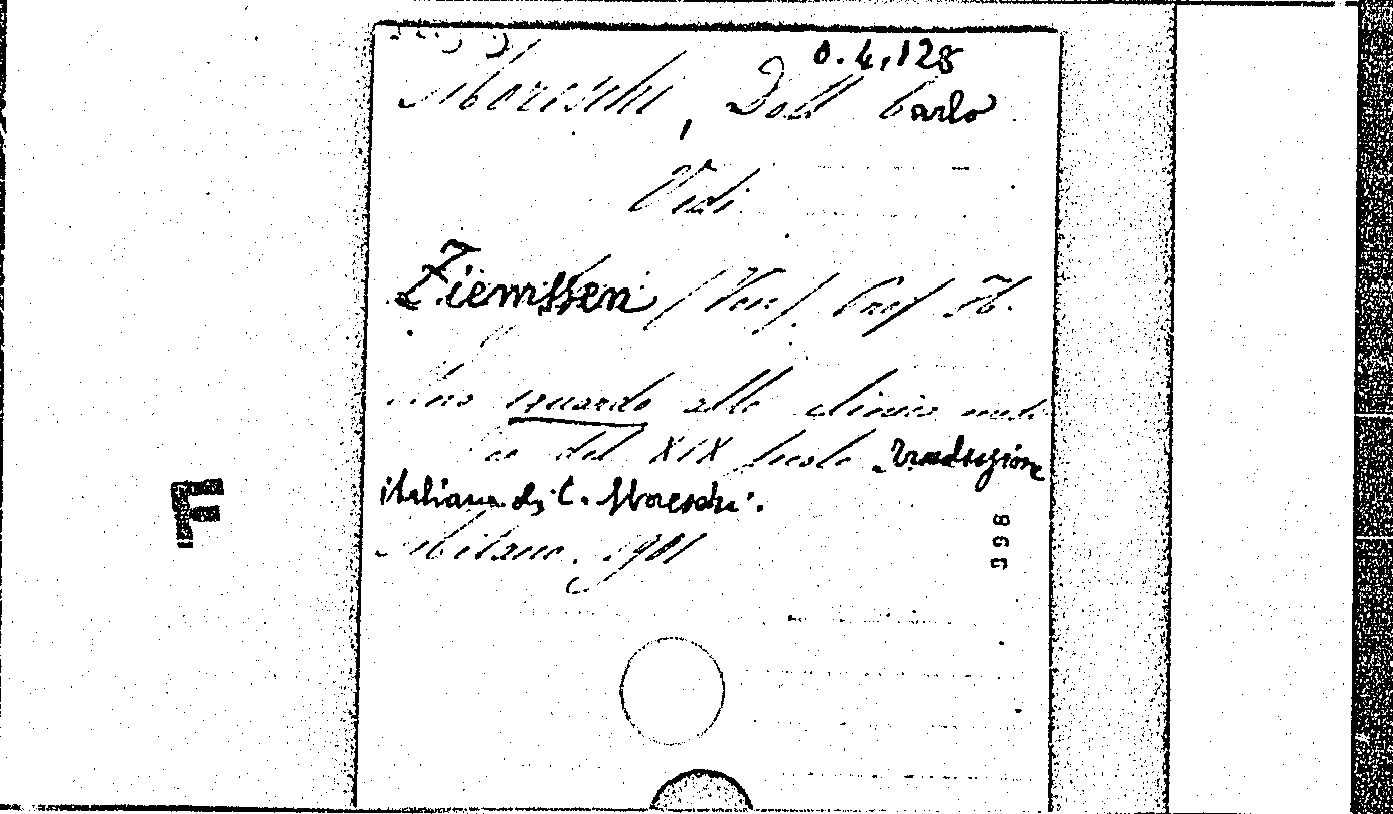 O.4.128
Moreschi, Dott Carlo
Vedi
Ziemssen (Von). Prof H.
Uno sguardo alla clinica medi
ca del XIX secolo Traduzione
italiana di C. Moreschi.
Milano, 1901
F